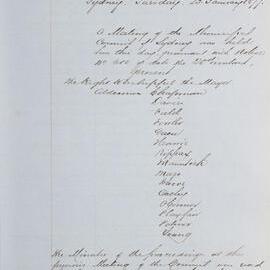 Sydney, Tuesday, 23 January 1877.
A Meeting of the Municipal
Council of Sydney was held
this day pursuant to Notice
No of date the 20th instant
Present
The Right Worshipful the Mayor
Aldermen Chapman
Davies
Field
Fowler
Green
Harris
Kippax
Macintosh
Moore
Oatley
O'Connor
Playfair
Palmer
Young
The Minutes of the proceedings at the
previous Meeting of the Council were read